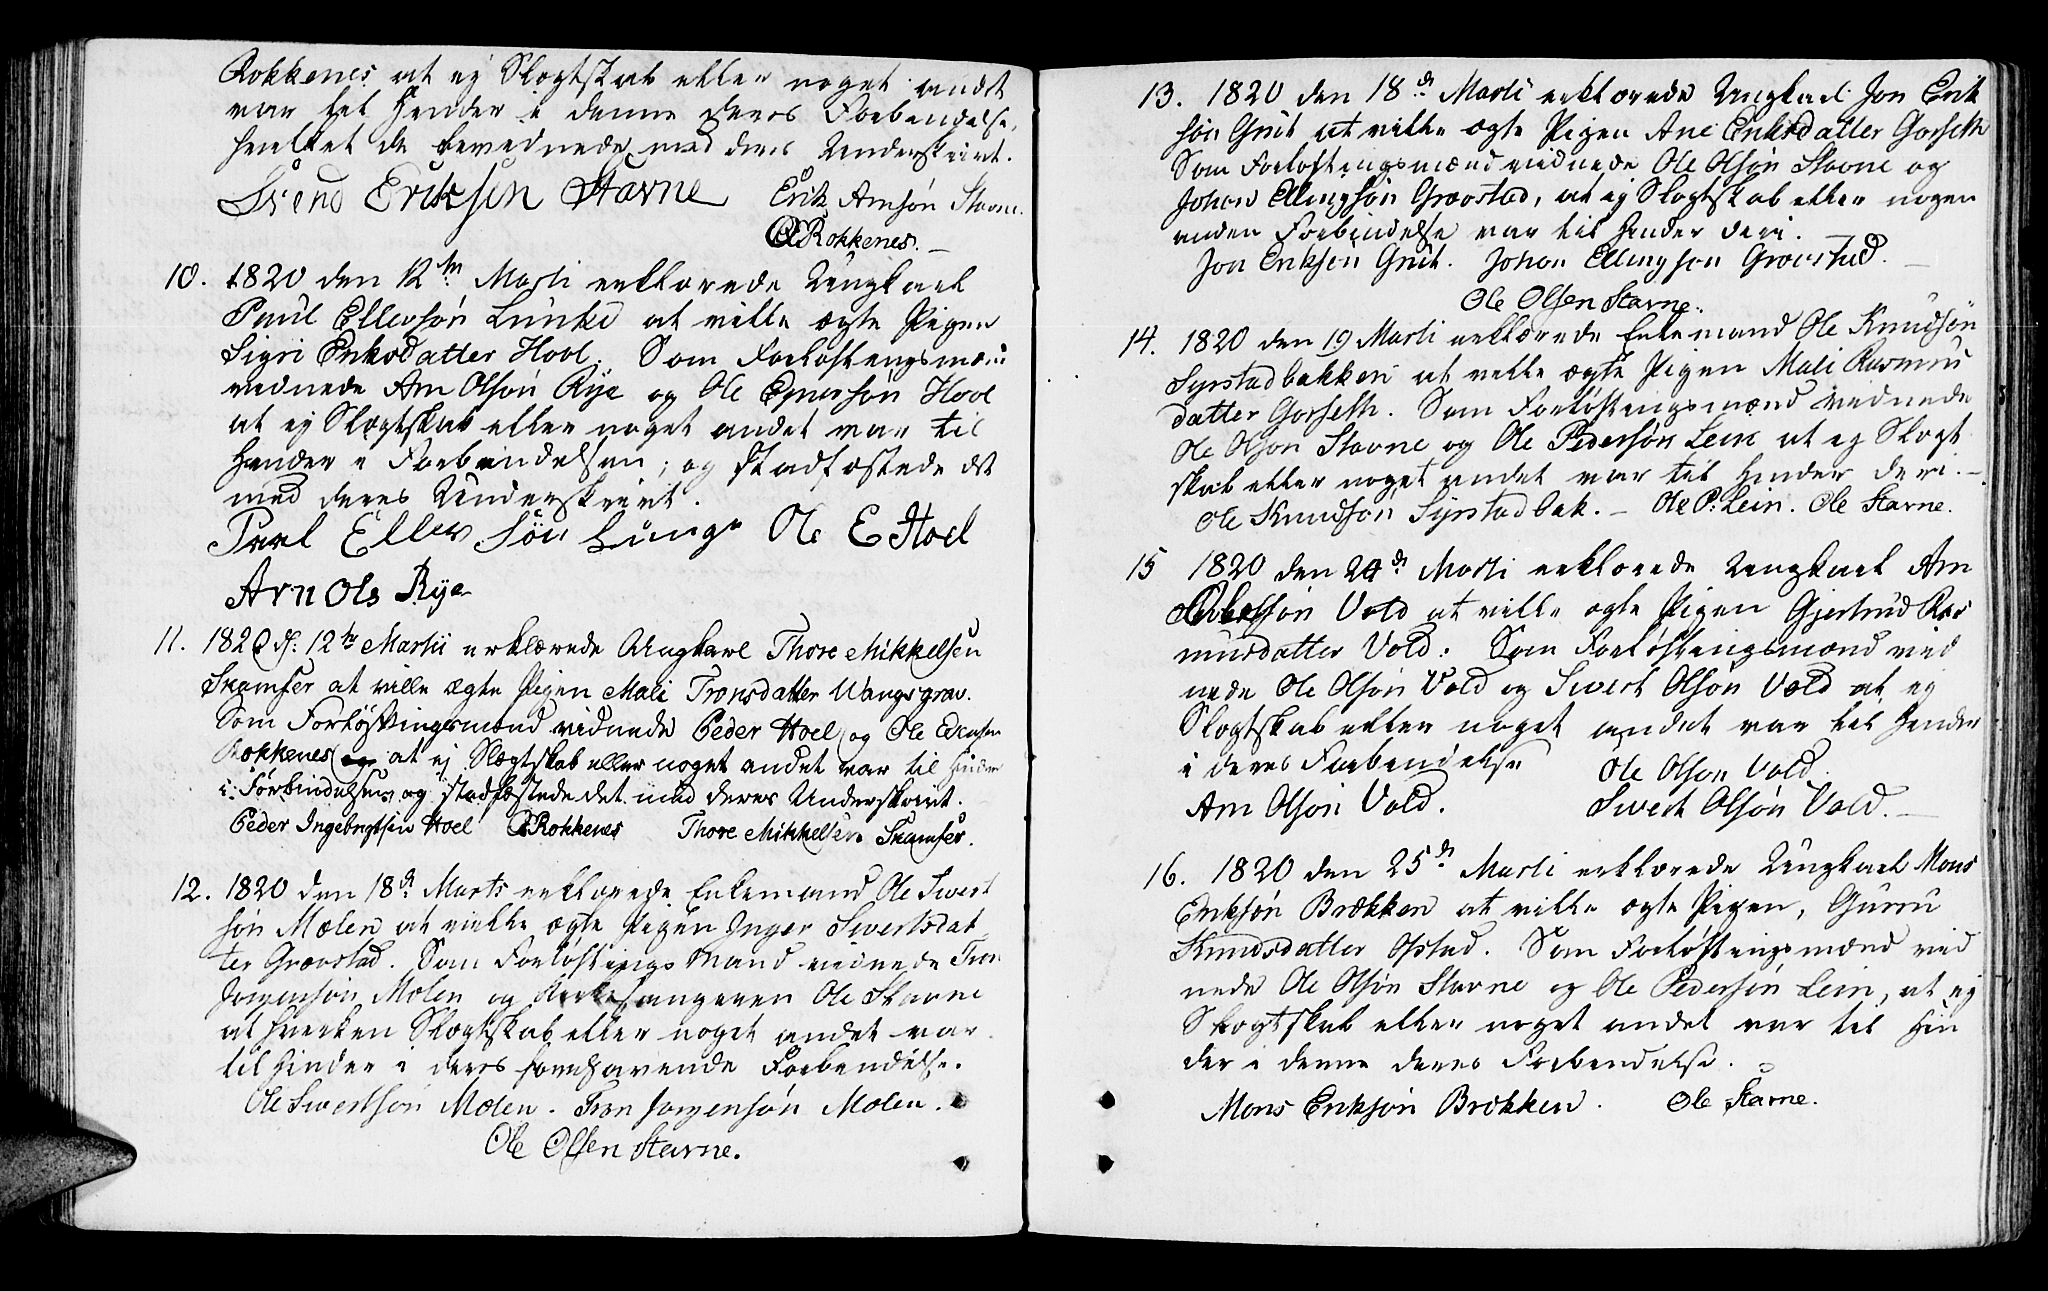 Rokkenes at ej Slægtskab eller noget andet
var til Hinder i denne deres Forbindelse,
hvilket de bevidnede med deres Underskrivt.
Svend Eriksen Stavne Erik Arnsøn Stavne.
Rokkenes.
10. 1820 den 12te Martii erklærede Ungkarl
Paul Ellevsøn Lunke at ville ægte Pigen
Sigri Eriksdatter Hool. Som Forløftningsmænd
vidnede Arn Olsøn Rye og Ole Hool
at ej Slægtskab eller noget andet var til
Hinder i Forbindelsen; og stadfæstede det
med deres Underskrivt.
Paul Ellev Søn Lunge Ole E Hoel
Arn Ols Rye
11. 1820 d: 12te Martii erklærede Ungkarl Thore Mikkelsen
Skamfer at ville ægte Pigen Mali Tronsdatter Wangsgrav.
Som Forløftningsmænd vidnede Peder Hoel og Ole
Rokkenes at ej Slægtskab eller noget andet var til Hinder
i Forbindelsen og stadfæstede det med deres Underskrivt.
Peder Ingebrigtsen Hoel Rokkenes Thore Mikkelsen Skamfer.
12. 1820 den 18de Marts erklærede Enkemand Ole Sivert
søn Mælen at ville ægte Pigen Inger Sivertsdat
ter Grævstad. Som Forløftnings Mænd vidnede Tron
Jørgensøn Mølen og Kirkesangeren Ole Stavne
at hverken Slægtskab eller noget andet var
til Hinder i deres forehavende Forbindelse.
Ole Sivertsøn Mælen. Tron Jørgensøn Mølen.
Ole Olsen Stavne.
13. 1820 den 18de Marti erklærede Ungkarl Jon Erik
søn Griit at ville ægte Pigen Ane Eriksdatter Gorseth
Som Forløftningsmænd vidnede Ole Olsøn Stavne og
Johan Ellingsøn Grævstad, at ej Slægtskab eller nogen
anden Forbindelse var til Hinder deri.
Jon Eriksøn Griit. Johan Ellingsøn Grævstad.
Ole Olsen Stavne.
14. 1820 den 19 Marti erklærede Enkemand Ole Knudsøn
Syrstadbakken at ville ægte Pigen Mali Rasmus
datter Gorseth. Som Forløftningsmænd vidnede
Ole Olsøn Stavne og Ole Pedersøn Lein at ej Slægt
skab eller noget andet var til Hinder deri.
Ole Knudsøn Syrstadbak. Ole P: Lein. Ole Stavne.
15 1820 den 24de Marti erklærede Ungkarl Arn
Olsøn Vold at ville ægte Pigen Gjertrud Ras
musdatter Vold. Som Forløftningsmænd vid
nede Ole Olsøn Vold og Sivert Olsøn Vold at ej
Slægtskab eller noget andet var til Hinder
i deres Forbindelse Ole Olsøn Vold
Arn Olsøn Vold. Sivert Olsøn Vold.
16. 1820 den 25de Marti erklærede Ungkarl Mons
Eriksøn Brækken at ville ægte Pigen, Gurru
Knudsdatter Opstad. Som Forløftningsmænd vid
nede Ole Olsøn Stavne og Ole Pedersøn Lein, at ej
Slægtskab eller noget andet var til Hin
der i denne deres Forbindelse.
Mons Eriksøn Brækken. Ole Stavne.